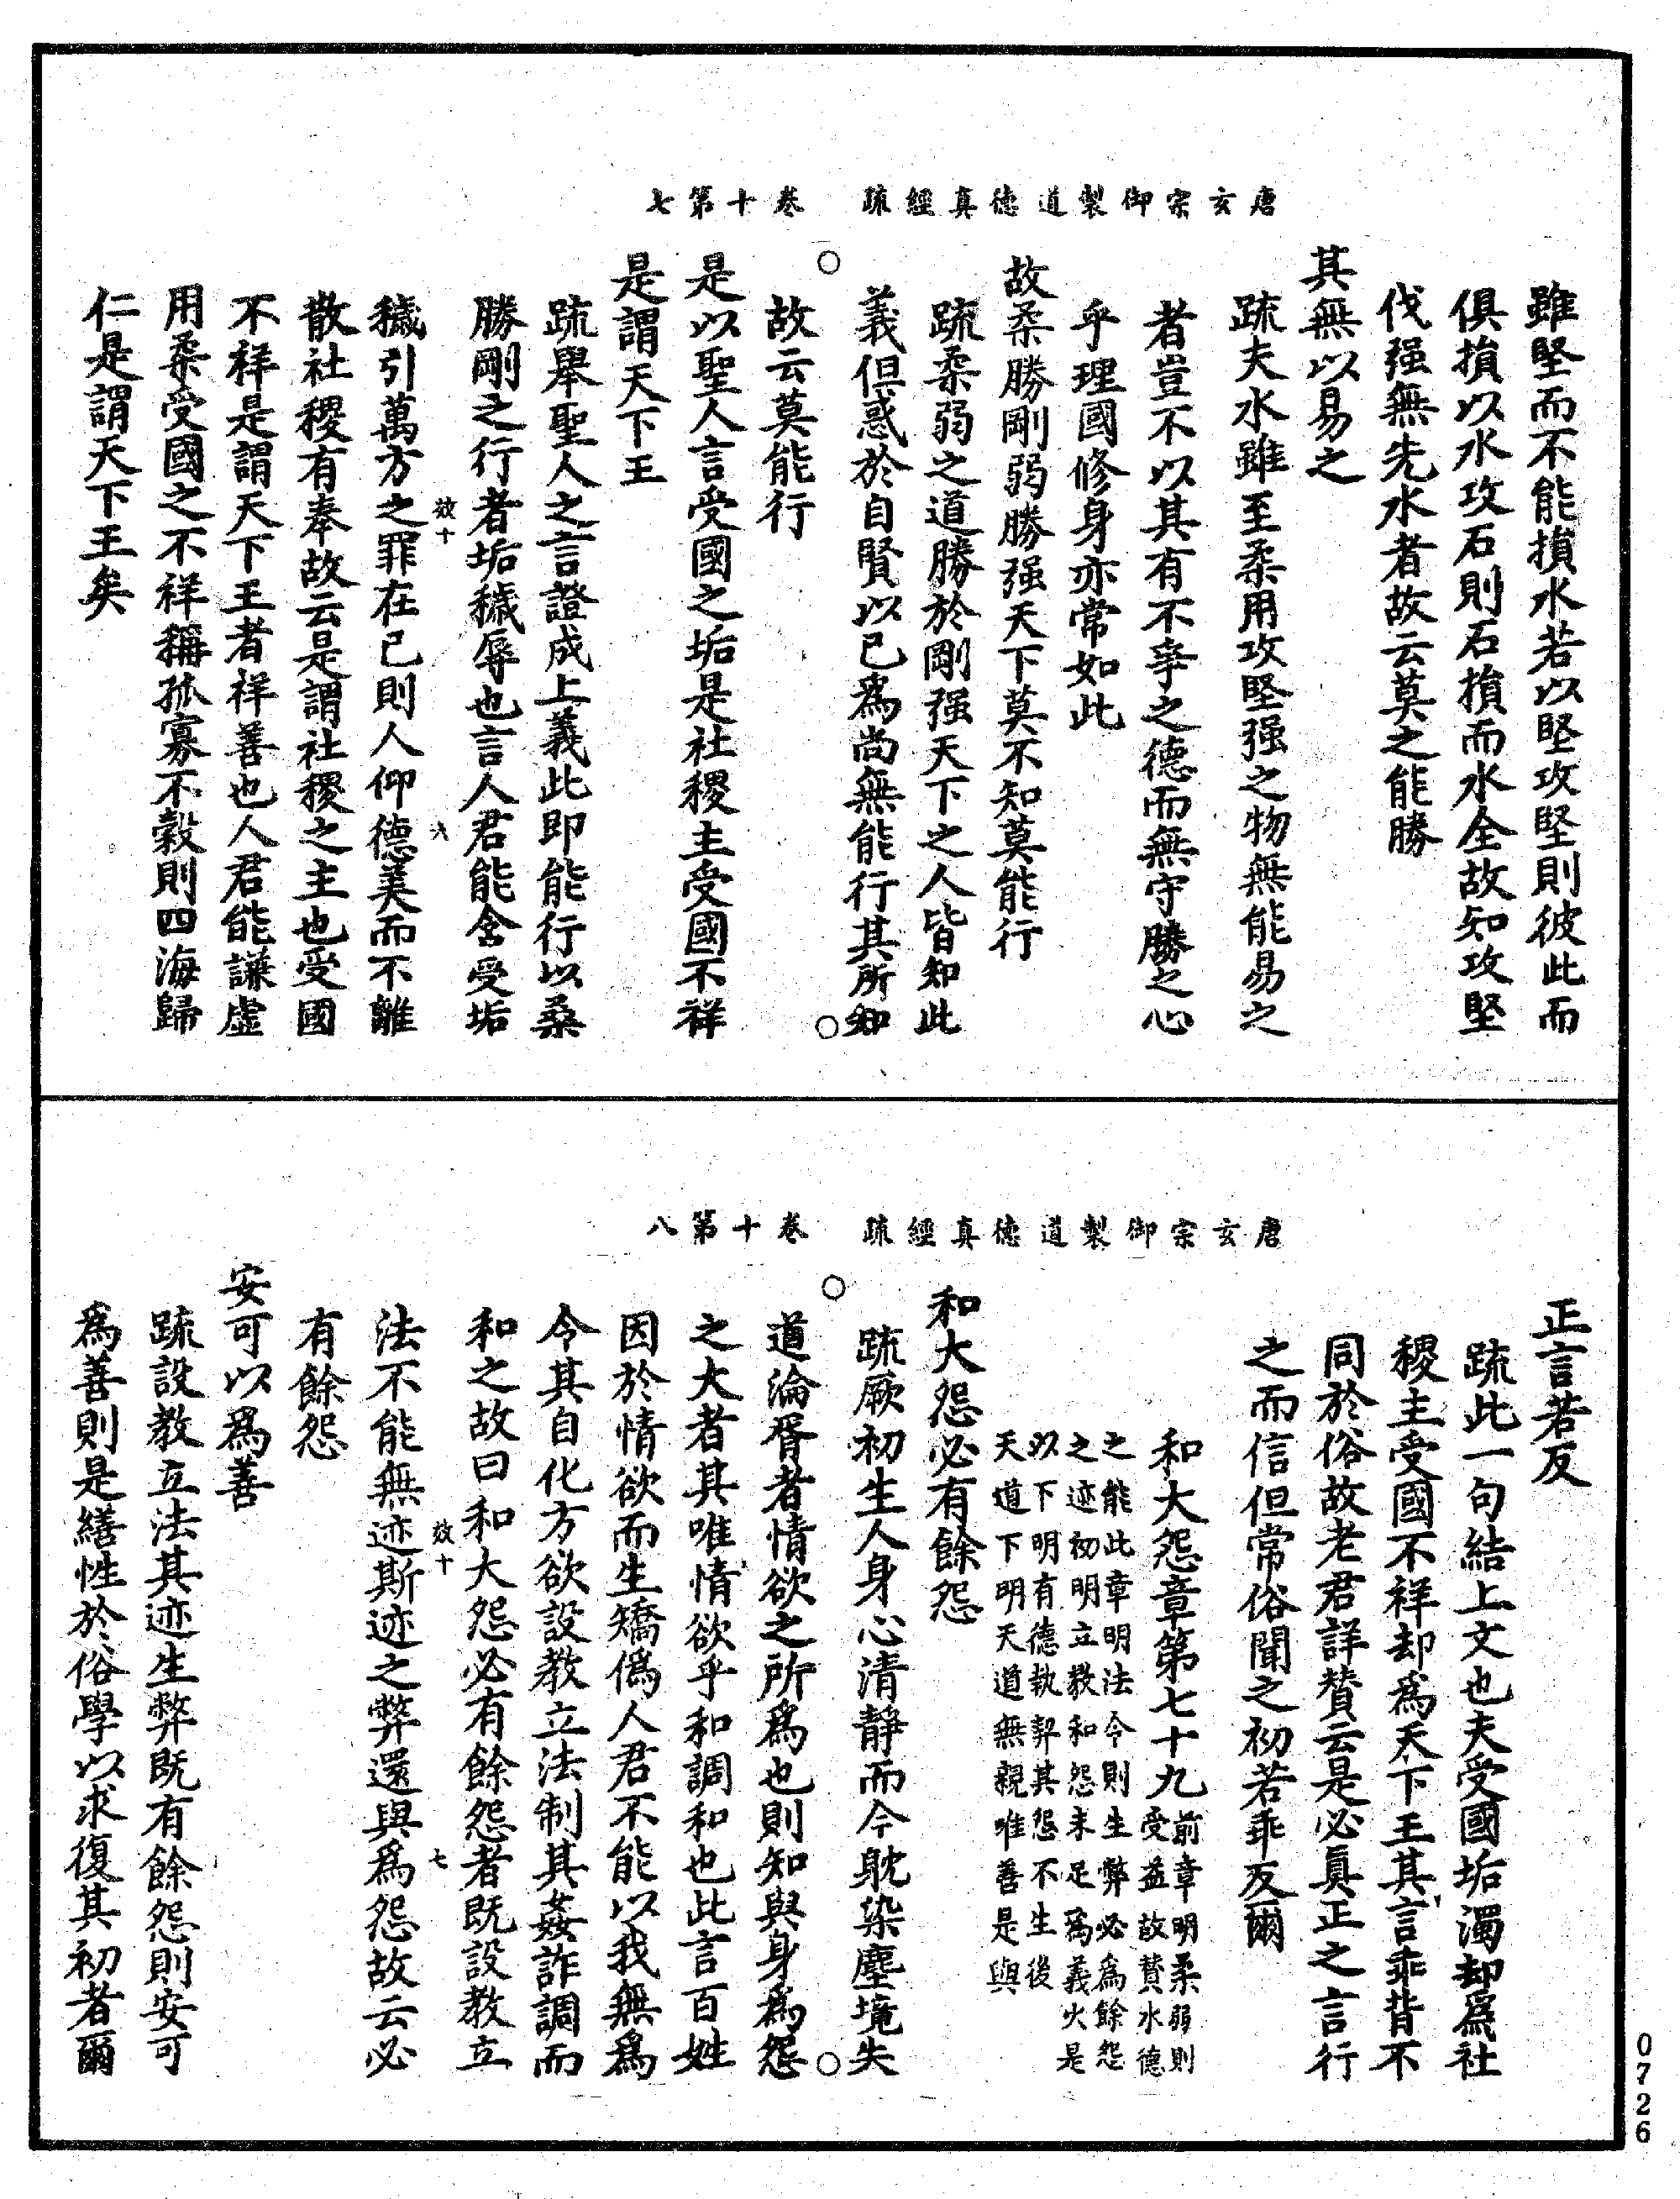 唐玄宗御製道德真經疏　卷十第七
雖堅而不能損水若以堅攻堅則彼此而
俱損以水攻石則石損而水全故知攻堅
伐强無先水者故云莫之能勝
其無以易之
疏夫水雖至柔用攻堅强之物無能易之
者豈不以其有不爭之德而無守勝之心
乎理國修身亦常如此
故柔勝剛弱勝强天下莫不知莫能行
疏柔弱之道勝於剛强天下之人皆知此
義但惑於自賢以已爲尚無能行其所知
故云莫能行
是以聖人言受國之垢是社稷主受國不祥
是謂天下王
疏舉聖人之言證成上義此即能行以柔
勝剛之行者垢穢辱也言人君能含受垢
效十　六
穢引萬方之罪在已則人仰德美而不離
散社稷有奉故云是謂社稷之主也受國
不祥是謂天下王者祥善也人君能謙虛
用柔受國之不祥稱孤寡不穀則四海歸
仁是謂天下王矣
唐玄宗御製道德真經疏　卷十第八
正言若反
疏此一句結上文也夫受國垢濁却爲社
稷主受國不祥却爲天下王其言乖背不
同於俗故老君詳贊云是必真正之言行
之而信但常俗聞之初若乖反爾
和大怨章第七十九前章明柔弱則
受益故贊水德
之能此章明法令則生弊必爲餘怨
之迹初明立教和怨未足爲義火是
以下明有德執契其怨不生後
天道下明天道無親唯善是與
和大怨必有餘怨
疏厥初生人身心清静而今躭染塵境失
道淪胥者情欲之所爲也則知與身爲怨
之大者其唯情欲乎和調和也此言百姓
因於情欲而生矯僞人君不能以我無爲
令其自化方欲設教立法制其姦詐調而
和之故曰和大怨必有餘怨者既設教立
效十　七
法不能無迹斯迹之弊還與爲怨故云必
有餘怨
安可以爲善
疏設教立法其迹生弊既有餘怨則安可
爲善則是繕性於俗學以求復其初者爾
0726